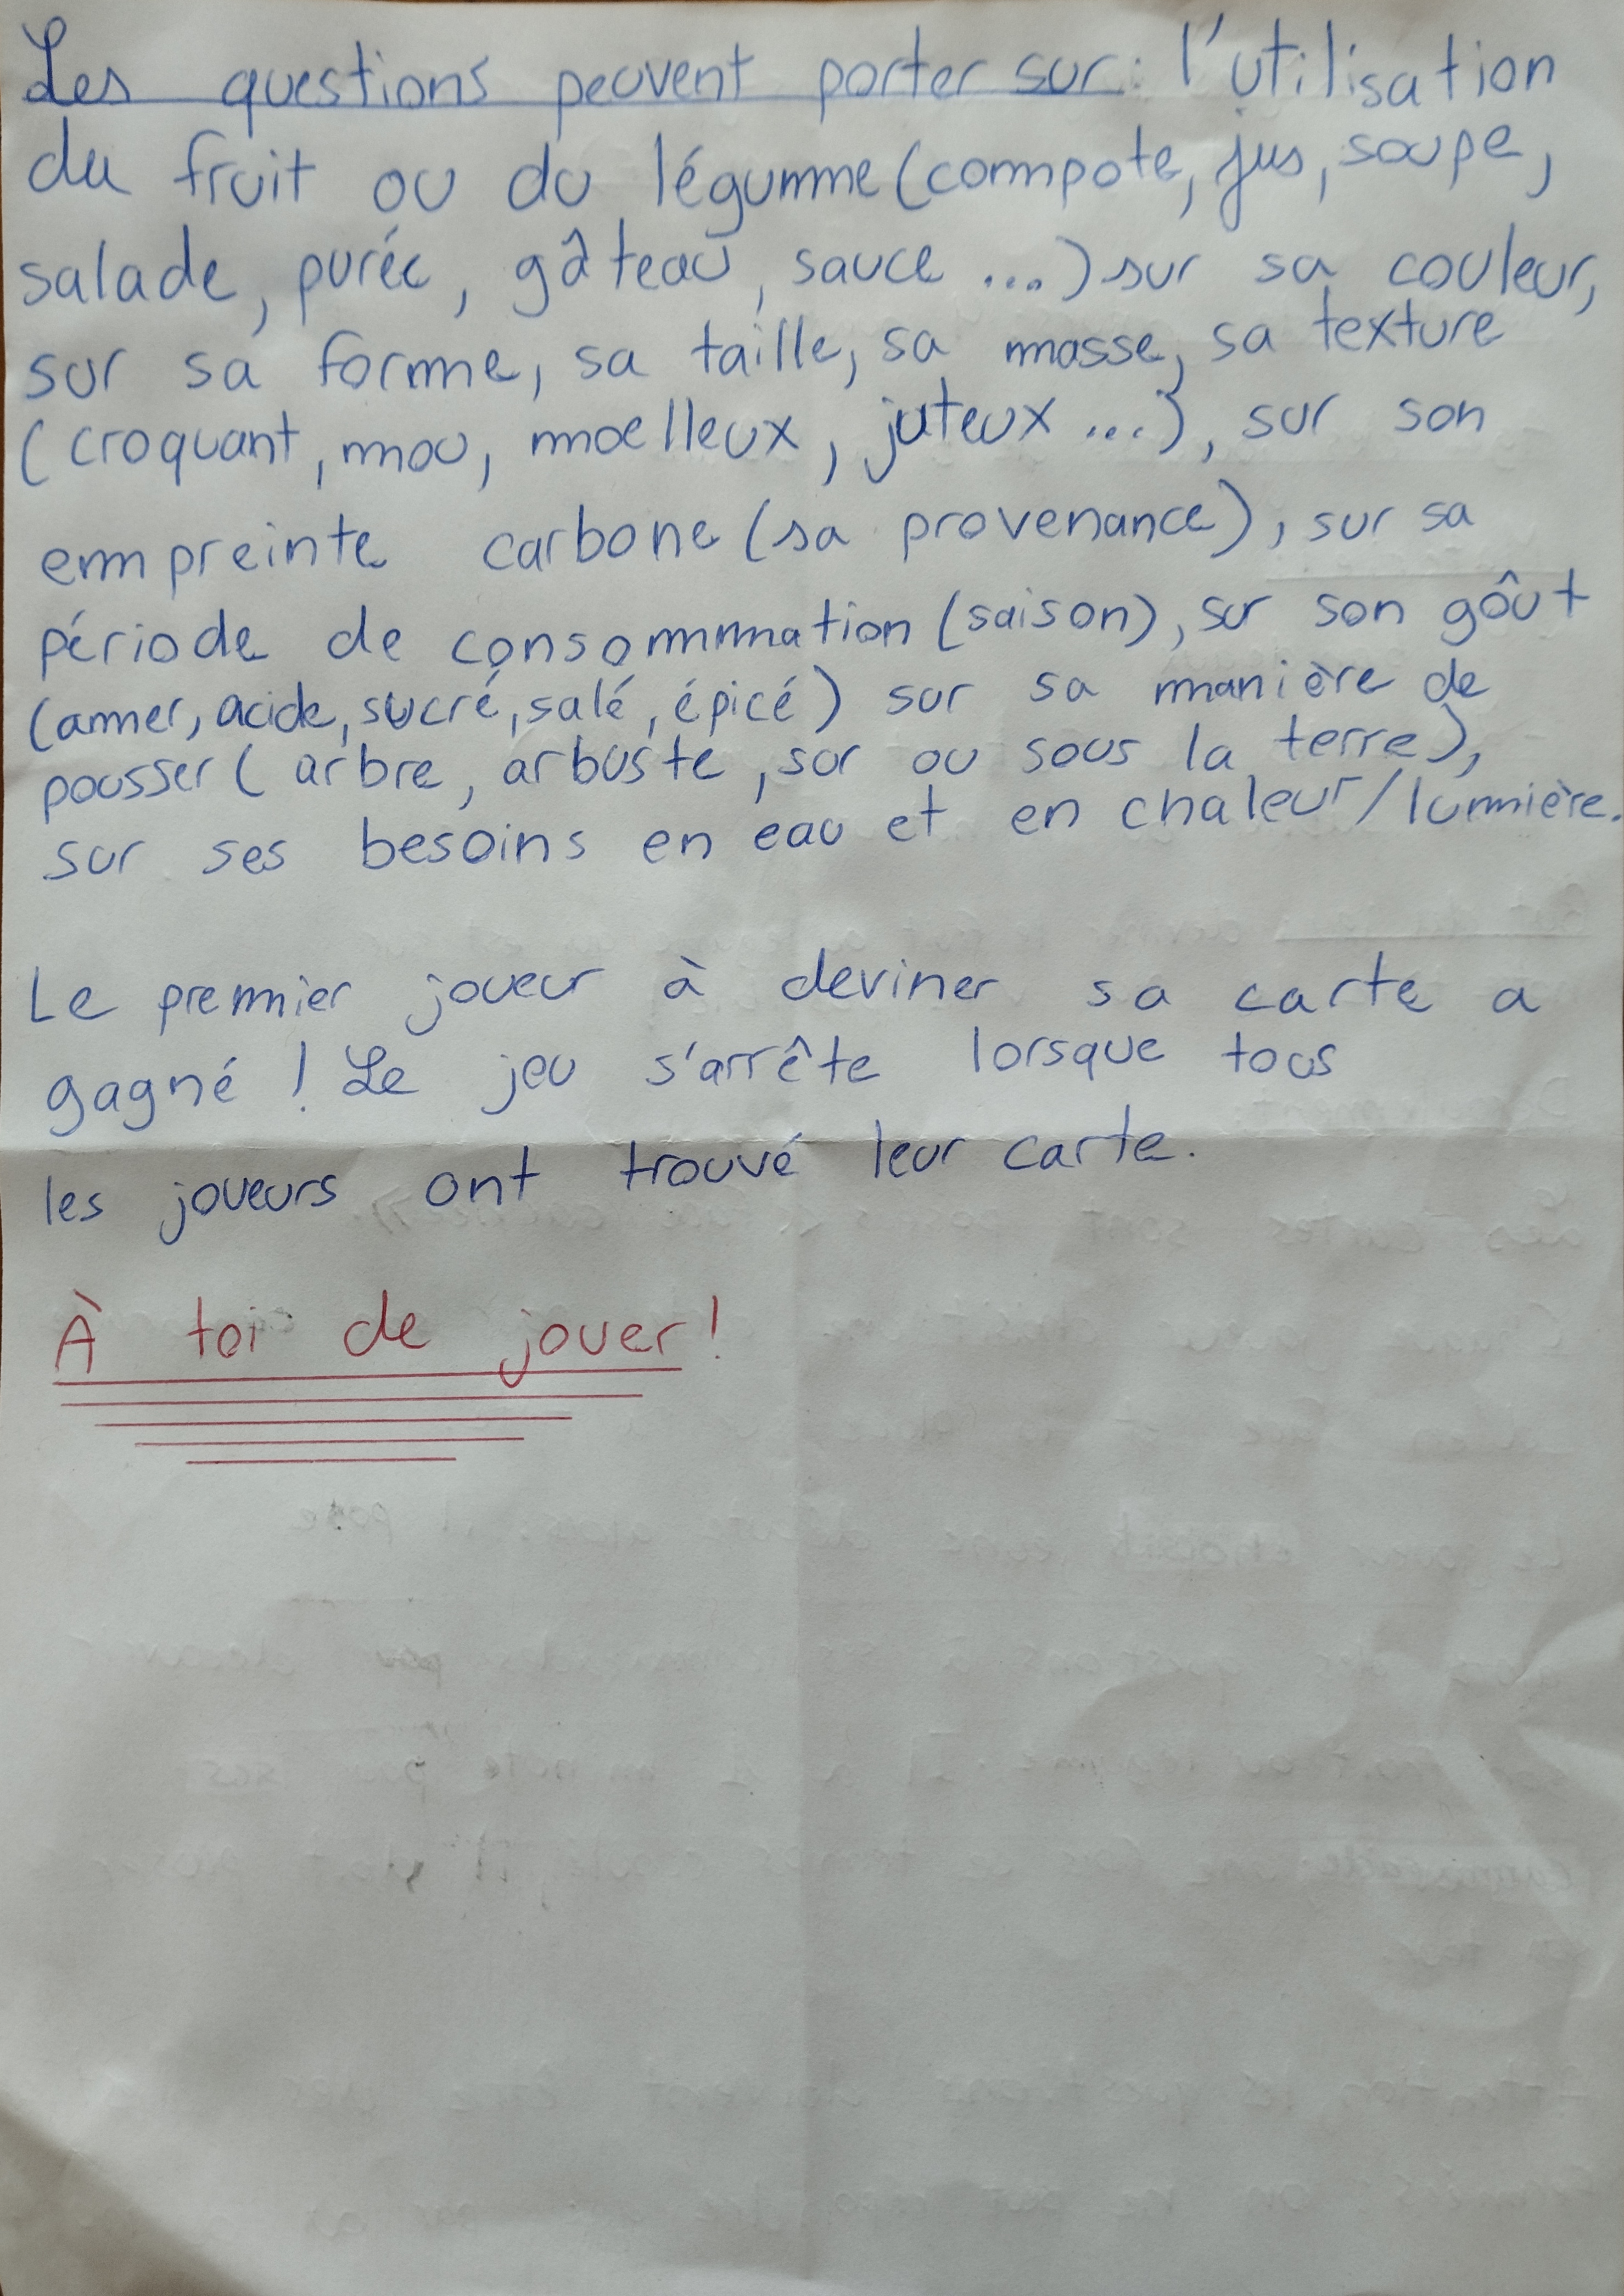 Les questions peuvent porter sur : l'utilisation
du fruit ou du légume (compote, jus, soupe,
salade, purée, gâteau, sauce ...) sur sa couleur,
sur sa forme, sa taille, sa masse, sa texture
(croquant, mou, moelleux, juteux ...), sur son
empreinte carbone (sa provenance), sur sa
période de consommation (saison), sur son goût
(amer, acide, sucré, salé, épicé) sur sa manière de
pousser (arbre, arbuste, sur ou sous la terre),
sur ses besoins en eau et en chaleur/lumière.
Le premier joueur à deviner sa carte a
gagné ! Le jeu s'arrête lorsque tous
les joueurs ont trouvé leur carte.
À toi de jouer !